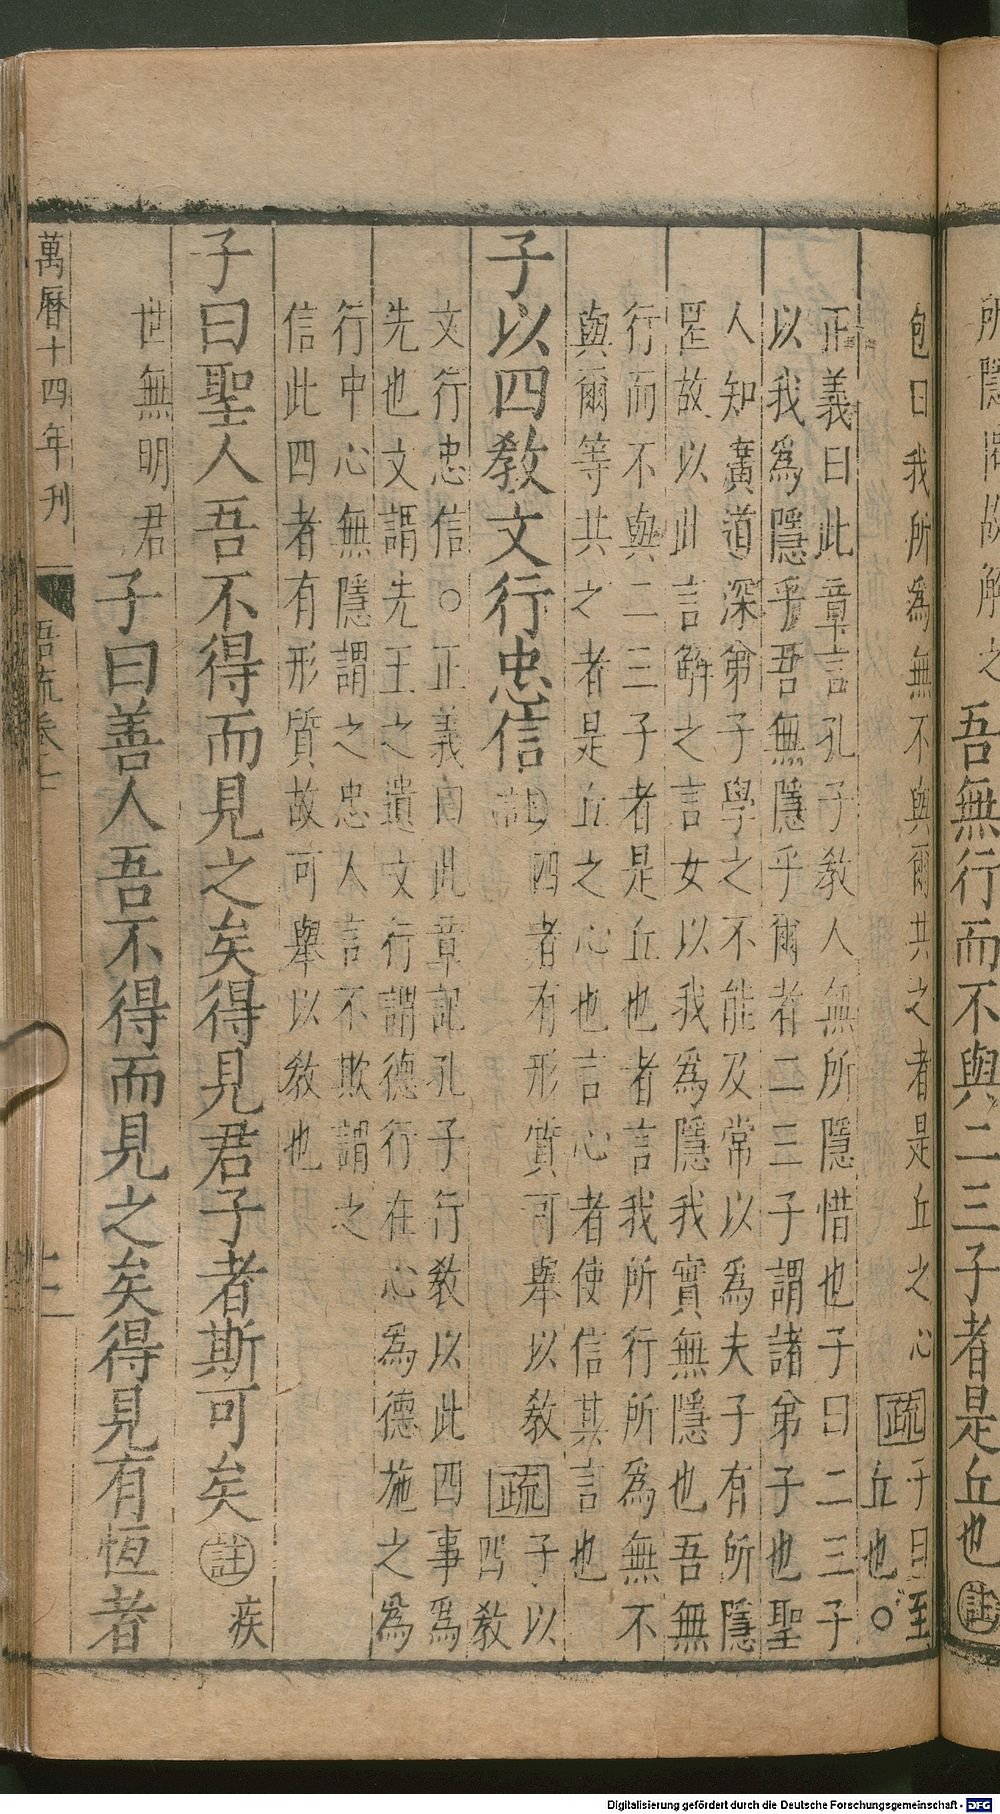 所隱
故解之
吾無行而不與二三子者是丘也 註
包曰我所爲無不與爾共之者是丘之心 疏 子曰至
丘也○
正義曰此章言孔子教人無所隱惜也子曰二三子
以我爲隱乎吾無隱乎爾者二三子謂諸弟子也聖
人知廣道深弟子學之不能及常以爲夫子有所隱
是故以此言解之言女以我爲隱我實無隱也吾無
行而不與二三子者是丘也者言我所行所爲無不
與爾等共之者是丘之心也言心者使信其言也
子以四教文行忠信 註曰四者有形質可舉以教 疏 子以
四教
文行忠信○正義曰此章記孔子行教以此四事爲
先也文謂先王之遺文行謂德行在心爲德施之爲
行中心無隱謂之忠人言不欺謂之
信此四者有形質故可舉以教也
子曰聖人吾不得而見之矣得見君子者斯可矣 註 疾
世無明君
子曰善人吾不得而見之矣得見有恆者
萬曆十四年刊
語疏卷七
十二
Digitalisierung gefördert durch die Deutsche Forschungsgemeinschaft - DFG